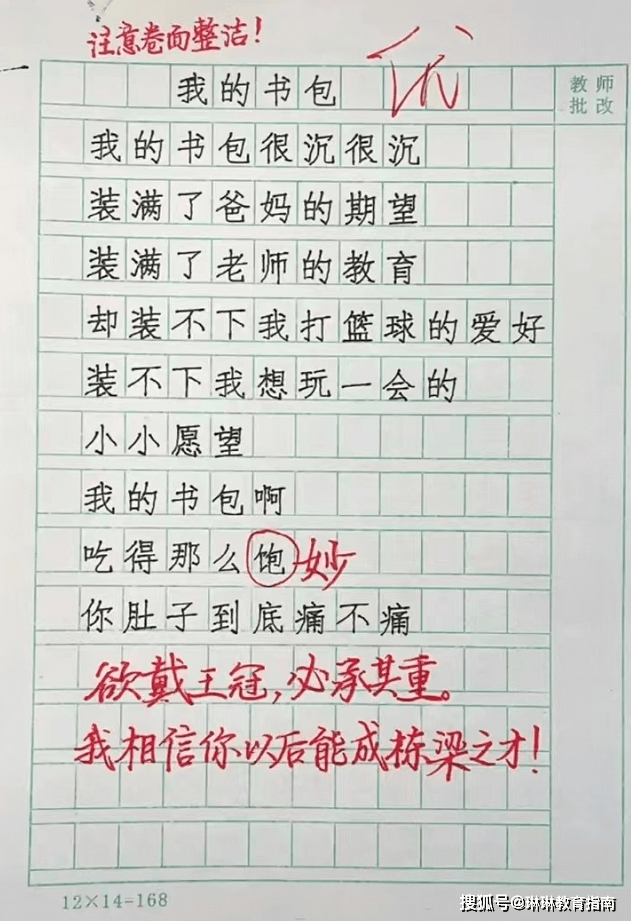 注意卷面整洁！
我的书包 优
教师
批改
我的书包很沉很沉
装满了爸妈的期望
装满了老师的教育
却装不下我打篮球的爱好
装不下我想玩一会的
小小愿望
我的书包啊
吃得那么饱 妙
你肚子到底痛不痛
欲戴王冠，必承其重。
我相信你以后能成栋梁之才！
12×14=168
搜狐号@琳琳教育指南